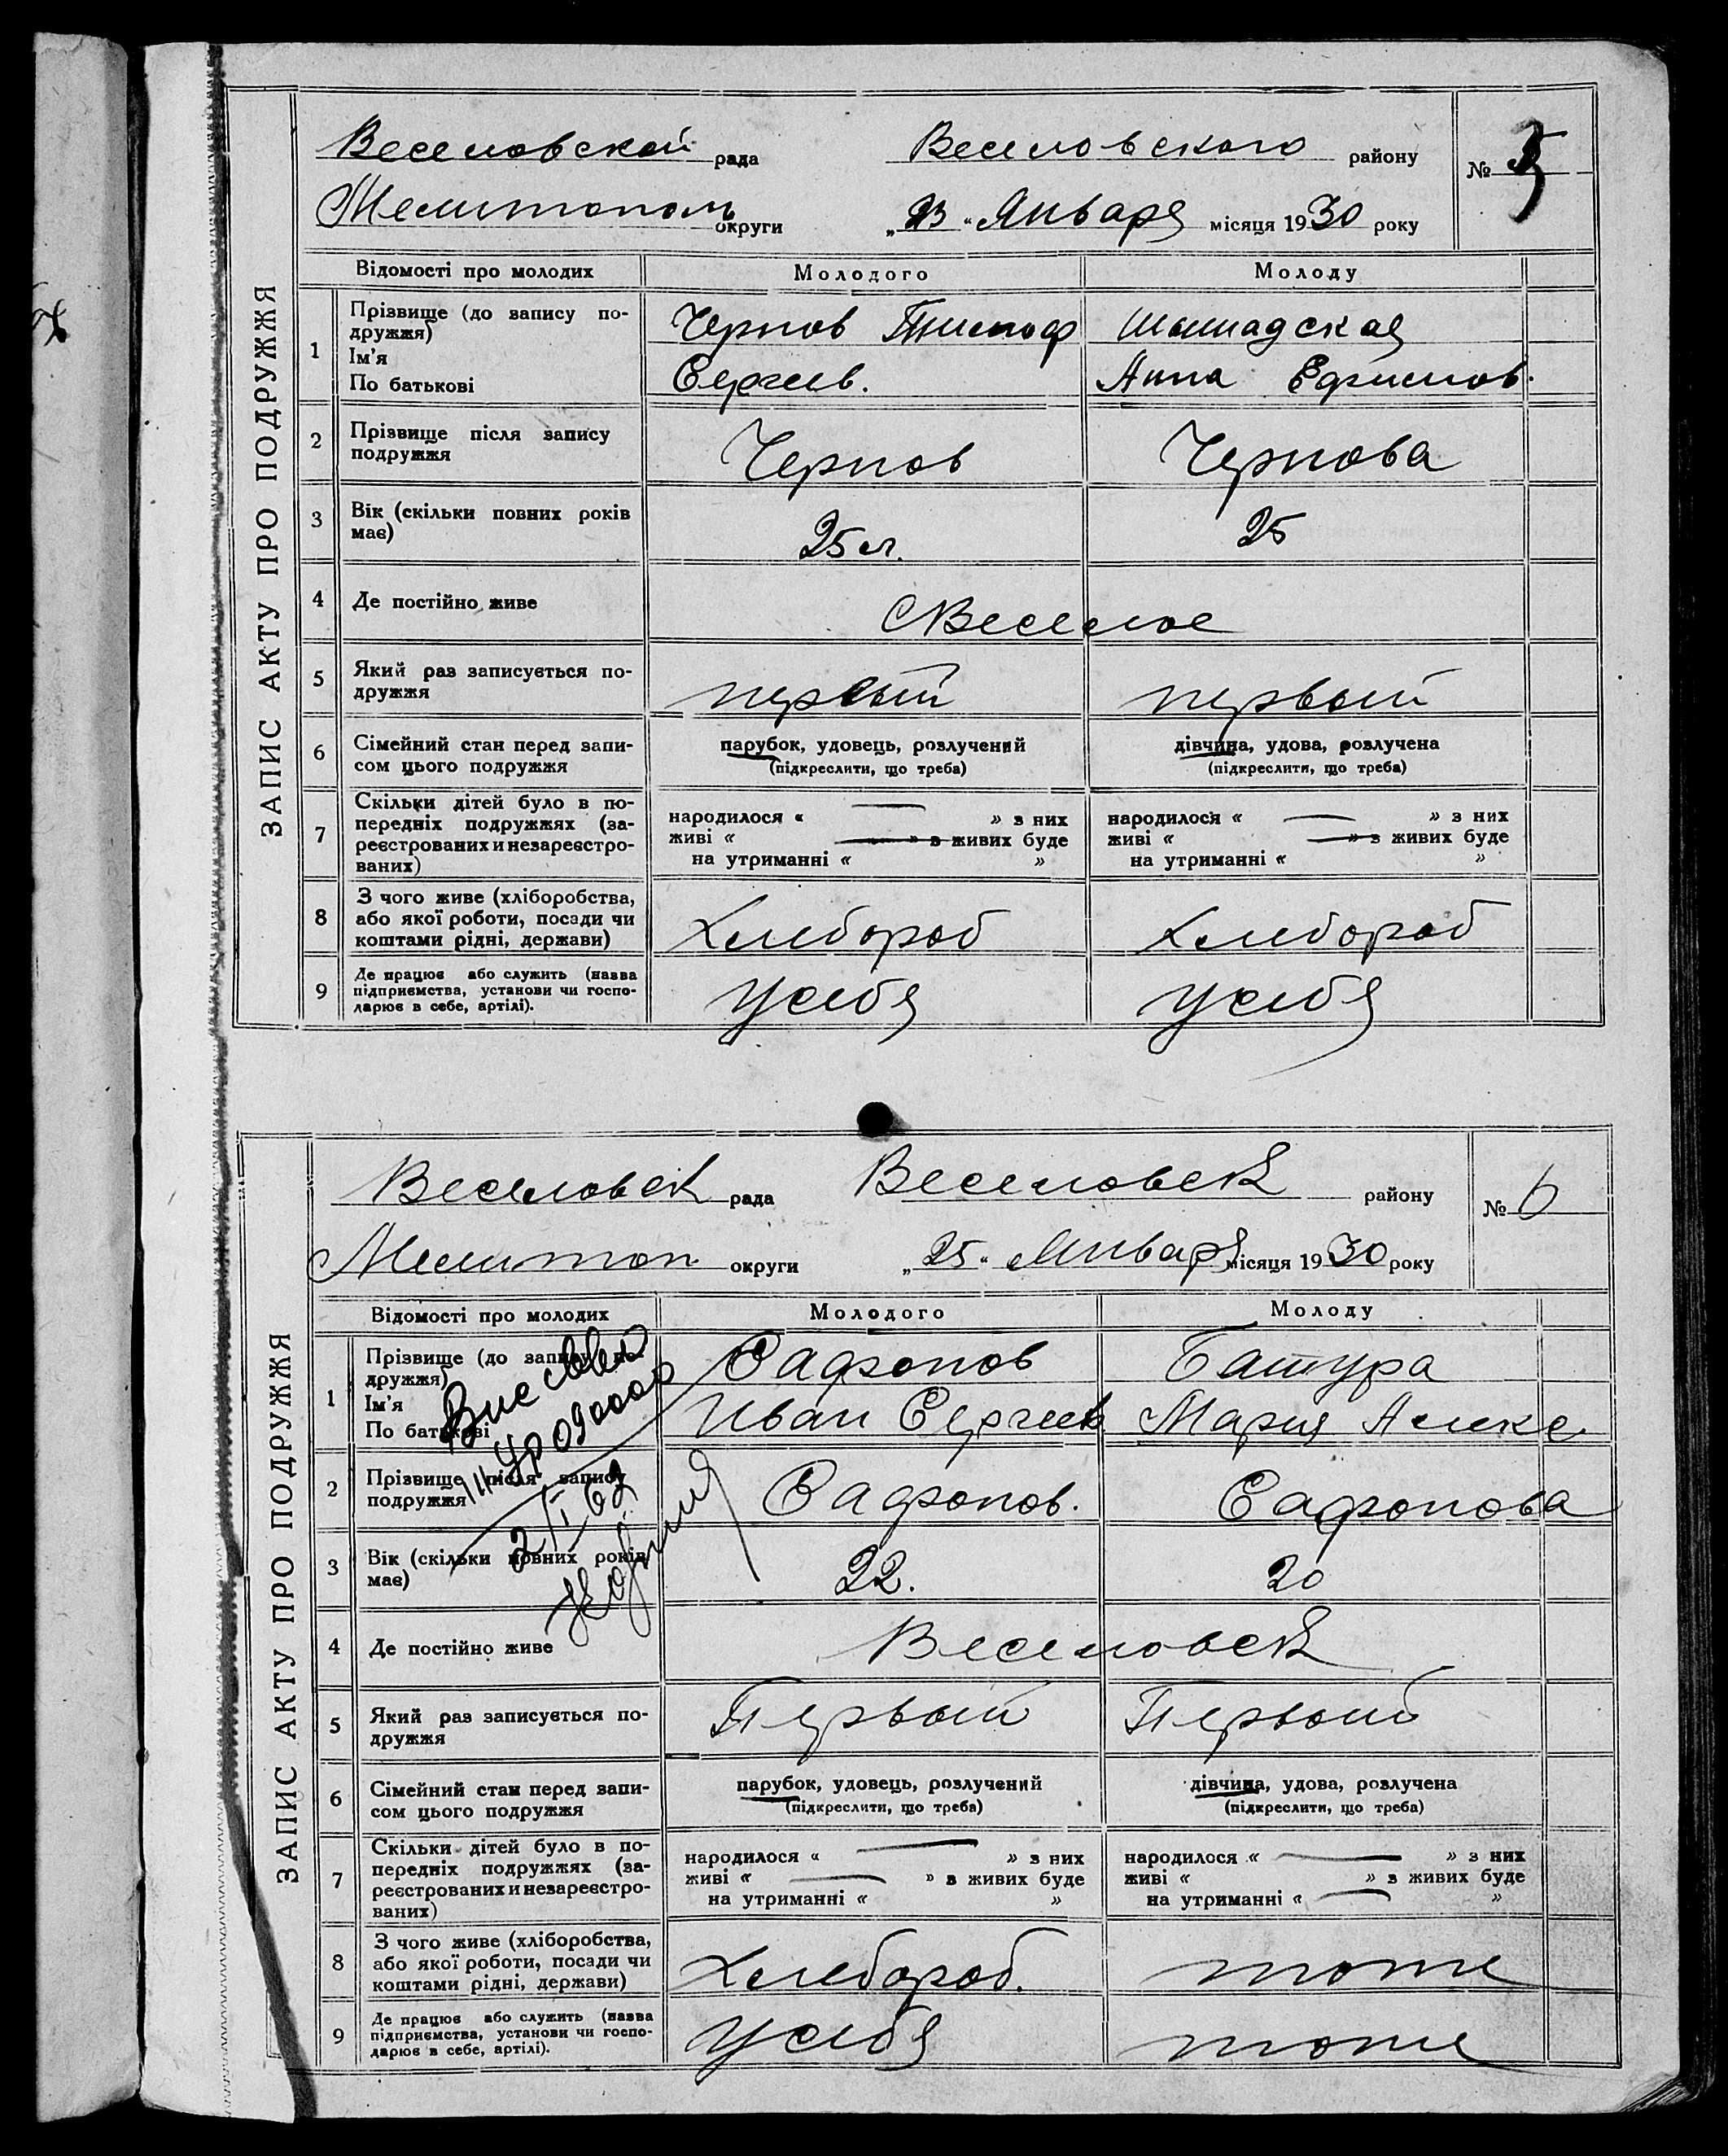 ЗАПИС АКТУ ПРО ПОДРУЖЖЯ
Веселовской рада Веселовского району № 5
Мелитополь округи „23“ Января місяця 1930 року
Відомості про молодих Молодого Молоду
1 Прізвище (до запису по-
дружжя)
Ім’я
По батькові
Чернов Тимоф
Сергеев.
Анна Ефимов.
2 Прізвище після запису
подружжя
Чернов Чернова
3 Вік (скільки повних років
має)
25 л. 25
4 Де постійно живе
С Веселое
5 Який раз записується по-
дружжя
первый первый
6 Сімейний стан перед запи-
сом цього подружжя
парубок, удовець, розлучений
(підкреслити, що треба)
дівчина, удова, розлучена
(підкреслити, що треба)
7 Скільки дітей було в по-
передніх подружжях (за-
реєстрованих и незареєстро-
ваних)
народилося « — » з них
живі « — » з живих буде
на утриманні « »
народилося « — » з них
живі « — » з живих буде
на утриманні « »
8 З чого живе (хліборобства,
або якої роботи, посади чи
коштами рідні, держави)
Хлебороб Хлебороб
9 Де працює або служить (назва
підприємства, установи чи госпо-
дарює в себе, артілі).
У себя У себя
ЗАПИС АКТУ ПРО ПОДРУЖЖЯ
Веселовск рада Веселовск району № 6
Мелитоп округи „25“ Января місяця 1930 року
Відомості про молодих Молодого Молоду
1 Прізвище (до запису по-
дружжя)
Ім’я
По батькові
Сафонов Батура
Иван Сергеев Мария Алекс
2 Прізвище після запису
подружжя
Сафонов. Сафонова
2/I 62
3 Вік (скільки повних років
має)
22. 20
4 Де постійно живе
Веселовск
5 Який раз записується по-
дружжя
Первый Первый
6 Сімейний стан перед запи-
сом цього подружжя
парубок, удовець, розлучений
(підкреслити, що треба)
дівчина, удова, розлучена
(підкреслити, що треба)
7 Скільки дітей було в по-
передніх подружжях (за-
реєстрованих и незареєстро-
ваних)
народилося « — » з них
живі « — » з живих буде
на утриманні « »
народилося « — » з них
живі « » з живих буде
на утриманні « — »
8 З чого живе (хліборобства,
або якої роботи, посади чи
коштами рідні, держави)
Хлебороб. тоже
9 Де працює або служить (назва
підприємства, установи чи госпо-
дарює в себе, артілі).
У себя тоже